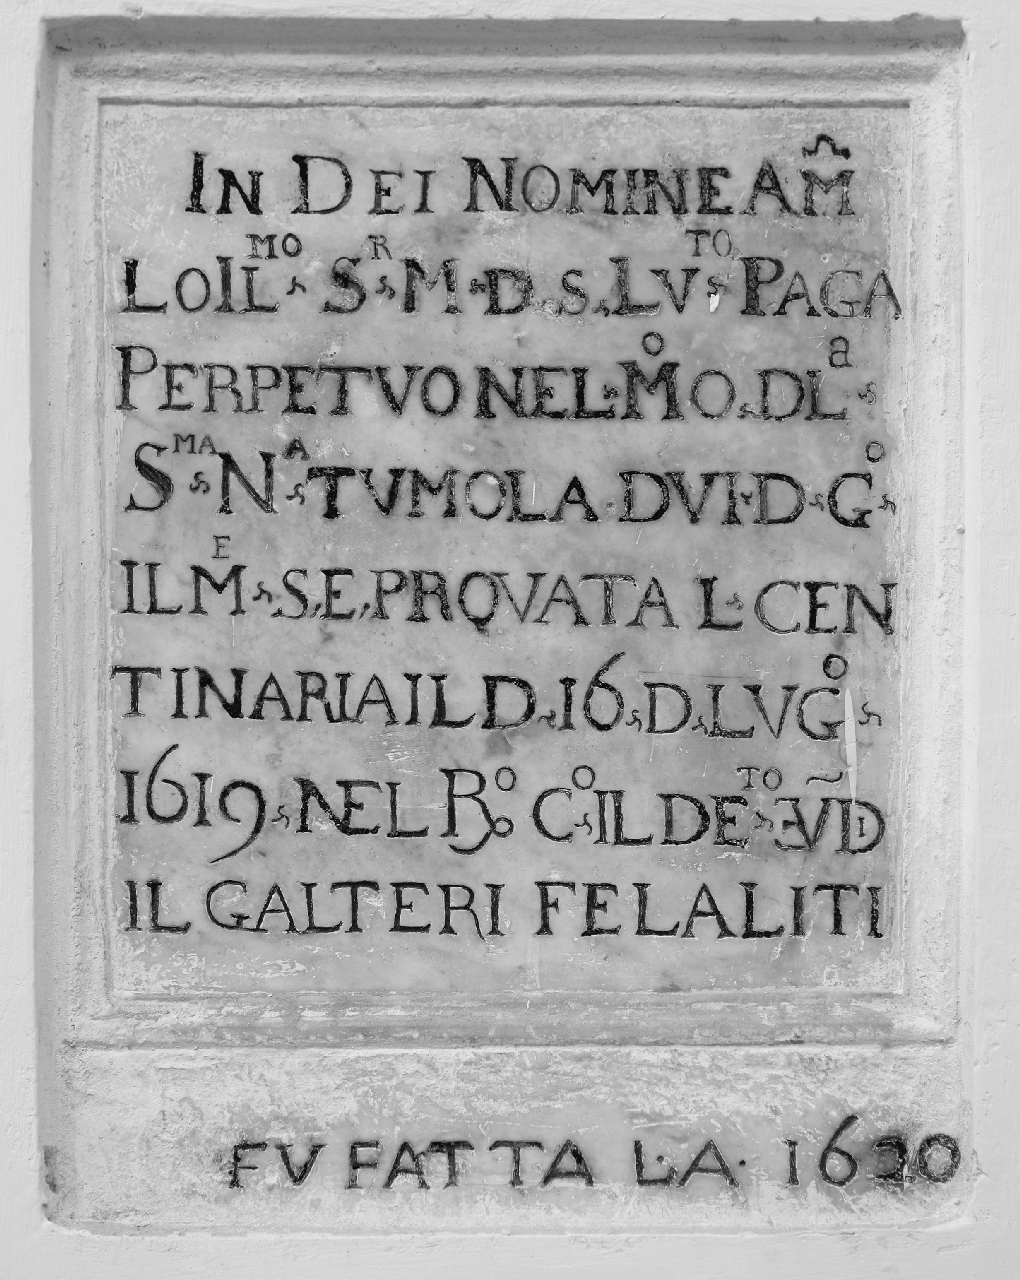 IN DEI NOMINE AM̃
LO ILMO S SR S M S D S S S LV S TO PAGA
PERPETVO NEL MO O D LA
SMA NA TVMOLA DVI D GO
IL ME S E PRQVATA L CEN
TINARIA IL D 16 D LVGO
1619 NEL RO CO IL DETO EVD
IL GALTERI FE LALITI
FV FATTA LA 1620